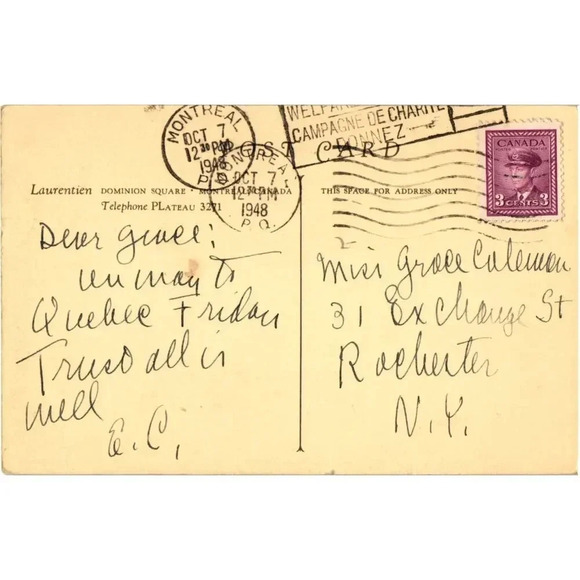 MONTREAL
OCT 7
12 30 PM
1948
P.Q.
MONTREAL
OCT 7
12 PM
1948
P.Q.
CAMPAGNE DE CHARITE
DONNEZ
POST CARD
CANADA
3 CENTS 3
Laurentien DOMINION SQUARE · MONTREAL, CANADA
Telephone PLateau 3271
THIS SPACE FOR ADDRESS ONLY
Dear Grace:
on way to
Quebec Friday
Trust all is
well
E.C.
2
Miss Grace Coleman
31 Exchange St
Rochester
N.Y.